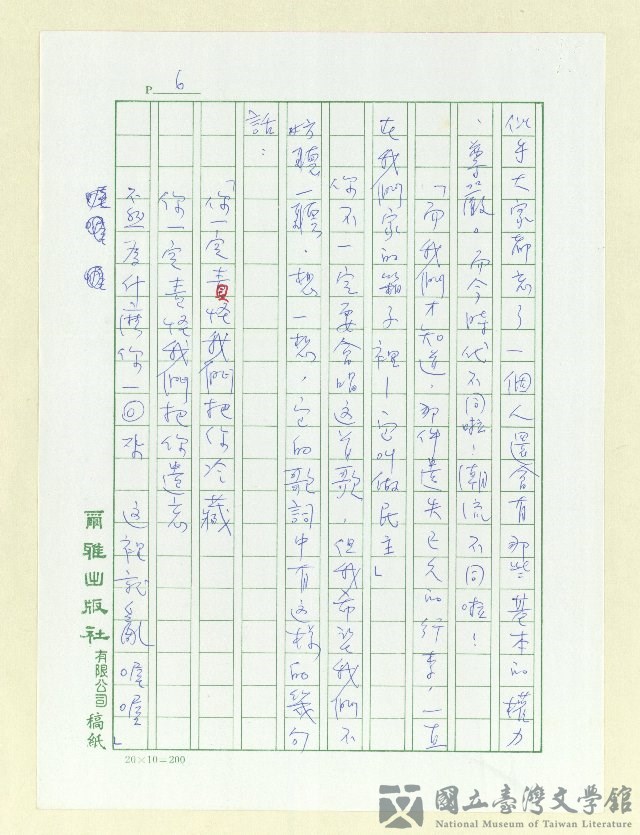 P 6
似乎大家都忘了一個人還會有那些基本的權力
、尊嚴。而今時代不同啦！潮流不同啦！
「而我們才知道，那件遺失已久的行李，一直
在我們家的箱子裡－它叫做民主」
你不一定要會唱這首歌，但我希望我們不
妨聽一聽，想一想，它的歌詞中有這樣的幾句
話：
「你一定責怪我們把你冷藏
你一定責怪我們把你遺忘
不然為什麼你一 這裡就亂喔喔」
喔喔 喔
爾雅出版社有限公司稿紙
20×10=200
國立臺灣文學館
National Museum of Taiwan Literature